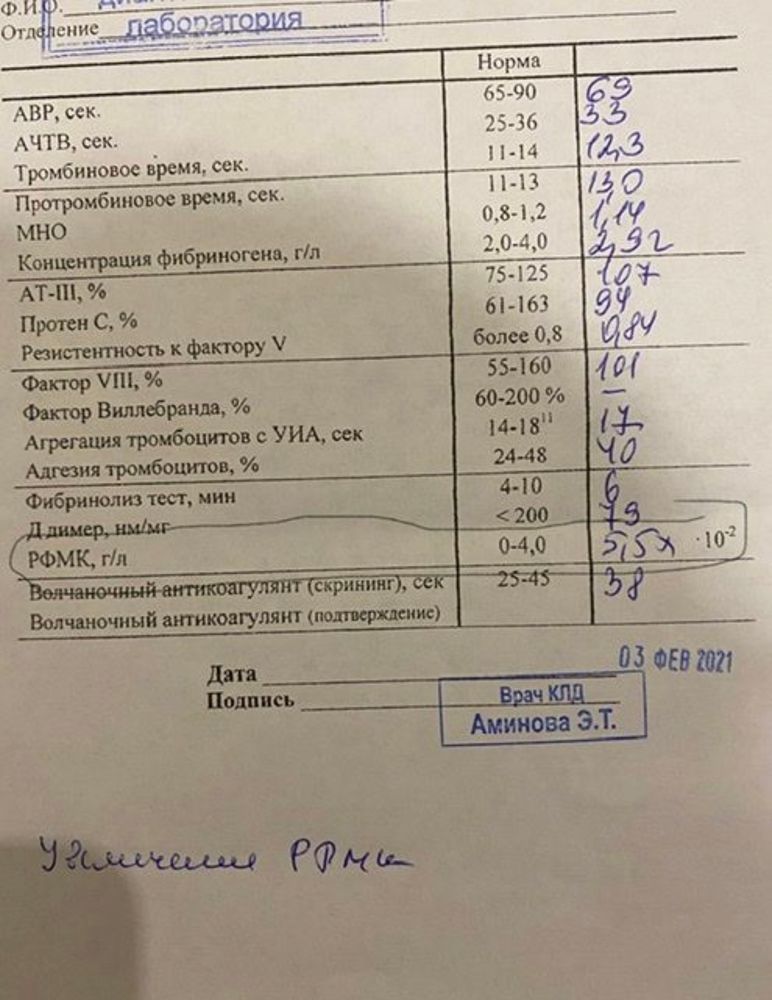 Ф.И.О.
Отделение лаборатория
Норма
АВР, сек. 65-90 69
АЧТВ, сек. 25-36 33
Тромбиновое время, сек. 11-14 12,3
Протромбиновое время, сек. 11-13 13,0
МНО 0,8-1,2 1,14
Концентрация фибриногена, г/л 2,0-4,0 2,92
АТ-III, % 75-125 107
Протен С, % 61-163 94
Резистентность к фактору V более 0,8 0,84
Фактор VIII, % 55-160 101
Фактор Виллебранда, % 60-200 % —
Агрегация тромбоцитов с УИА, сек 14-18¹¹ 17
Адгезия тромбоцитов, % 24-48 40
Фибринолиз тест, мин 4-10 6
Д димер, нм/мг < 200 79
РФМК, г/л 0-4,0 5,5х ·10⁻²
Волчаночный антикоагулянт (скрининг), сек 25-45 38
Волчаночный антикоагулянт (подтверждение)
03 ФЕВ 2021
Дата
Подпись
Врач КЛД
Аминова Э.Т.
Увеличение РФМК